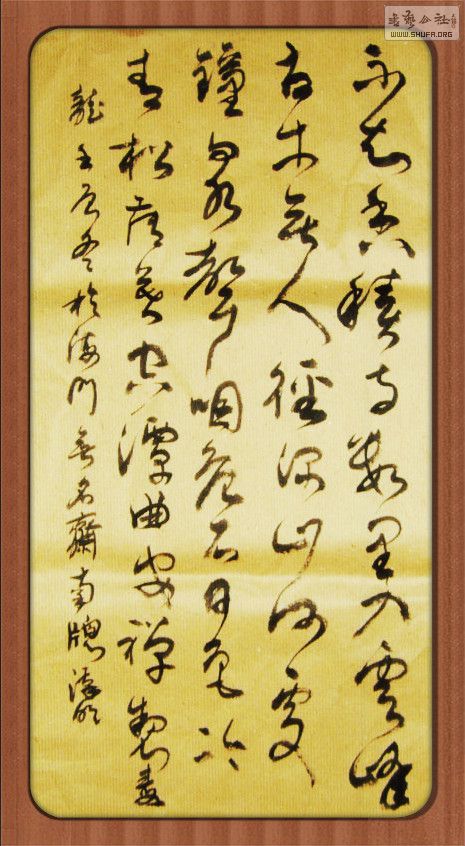 不知香積寺數里入雲峰
古木無人徑深山何處
鐘泉聲咽危石日色冷
青松薄暮空潭曲安禪製毒
龍壬辰冬於海門無名齋南牕
書藝公社
WWW.SHUFA.ORG